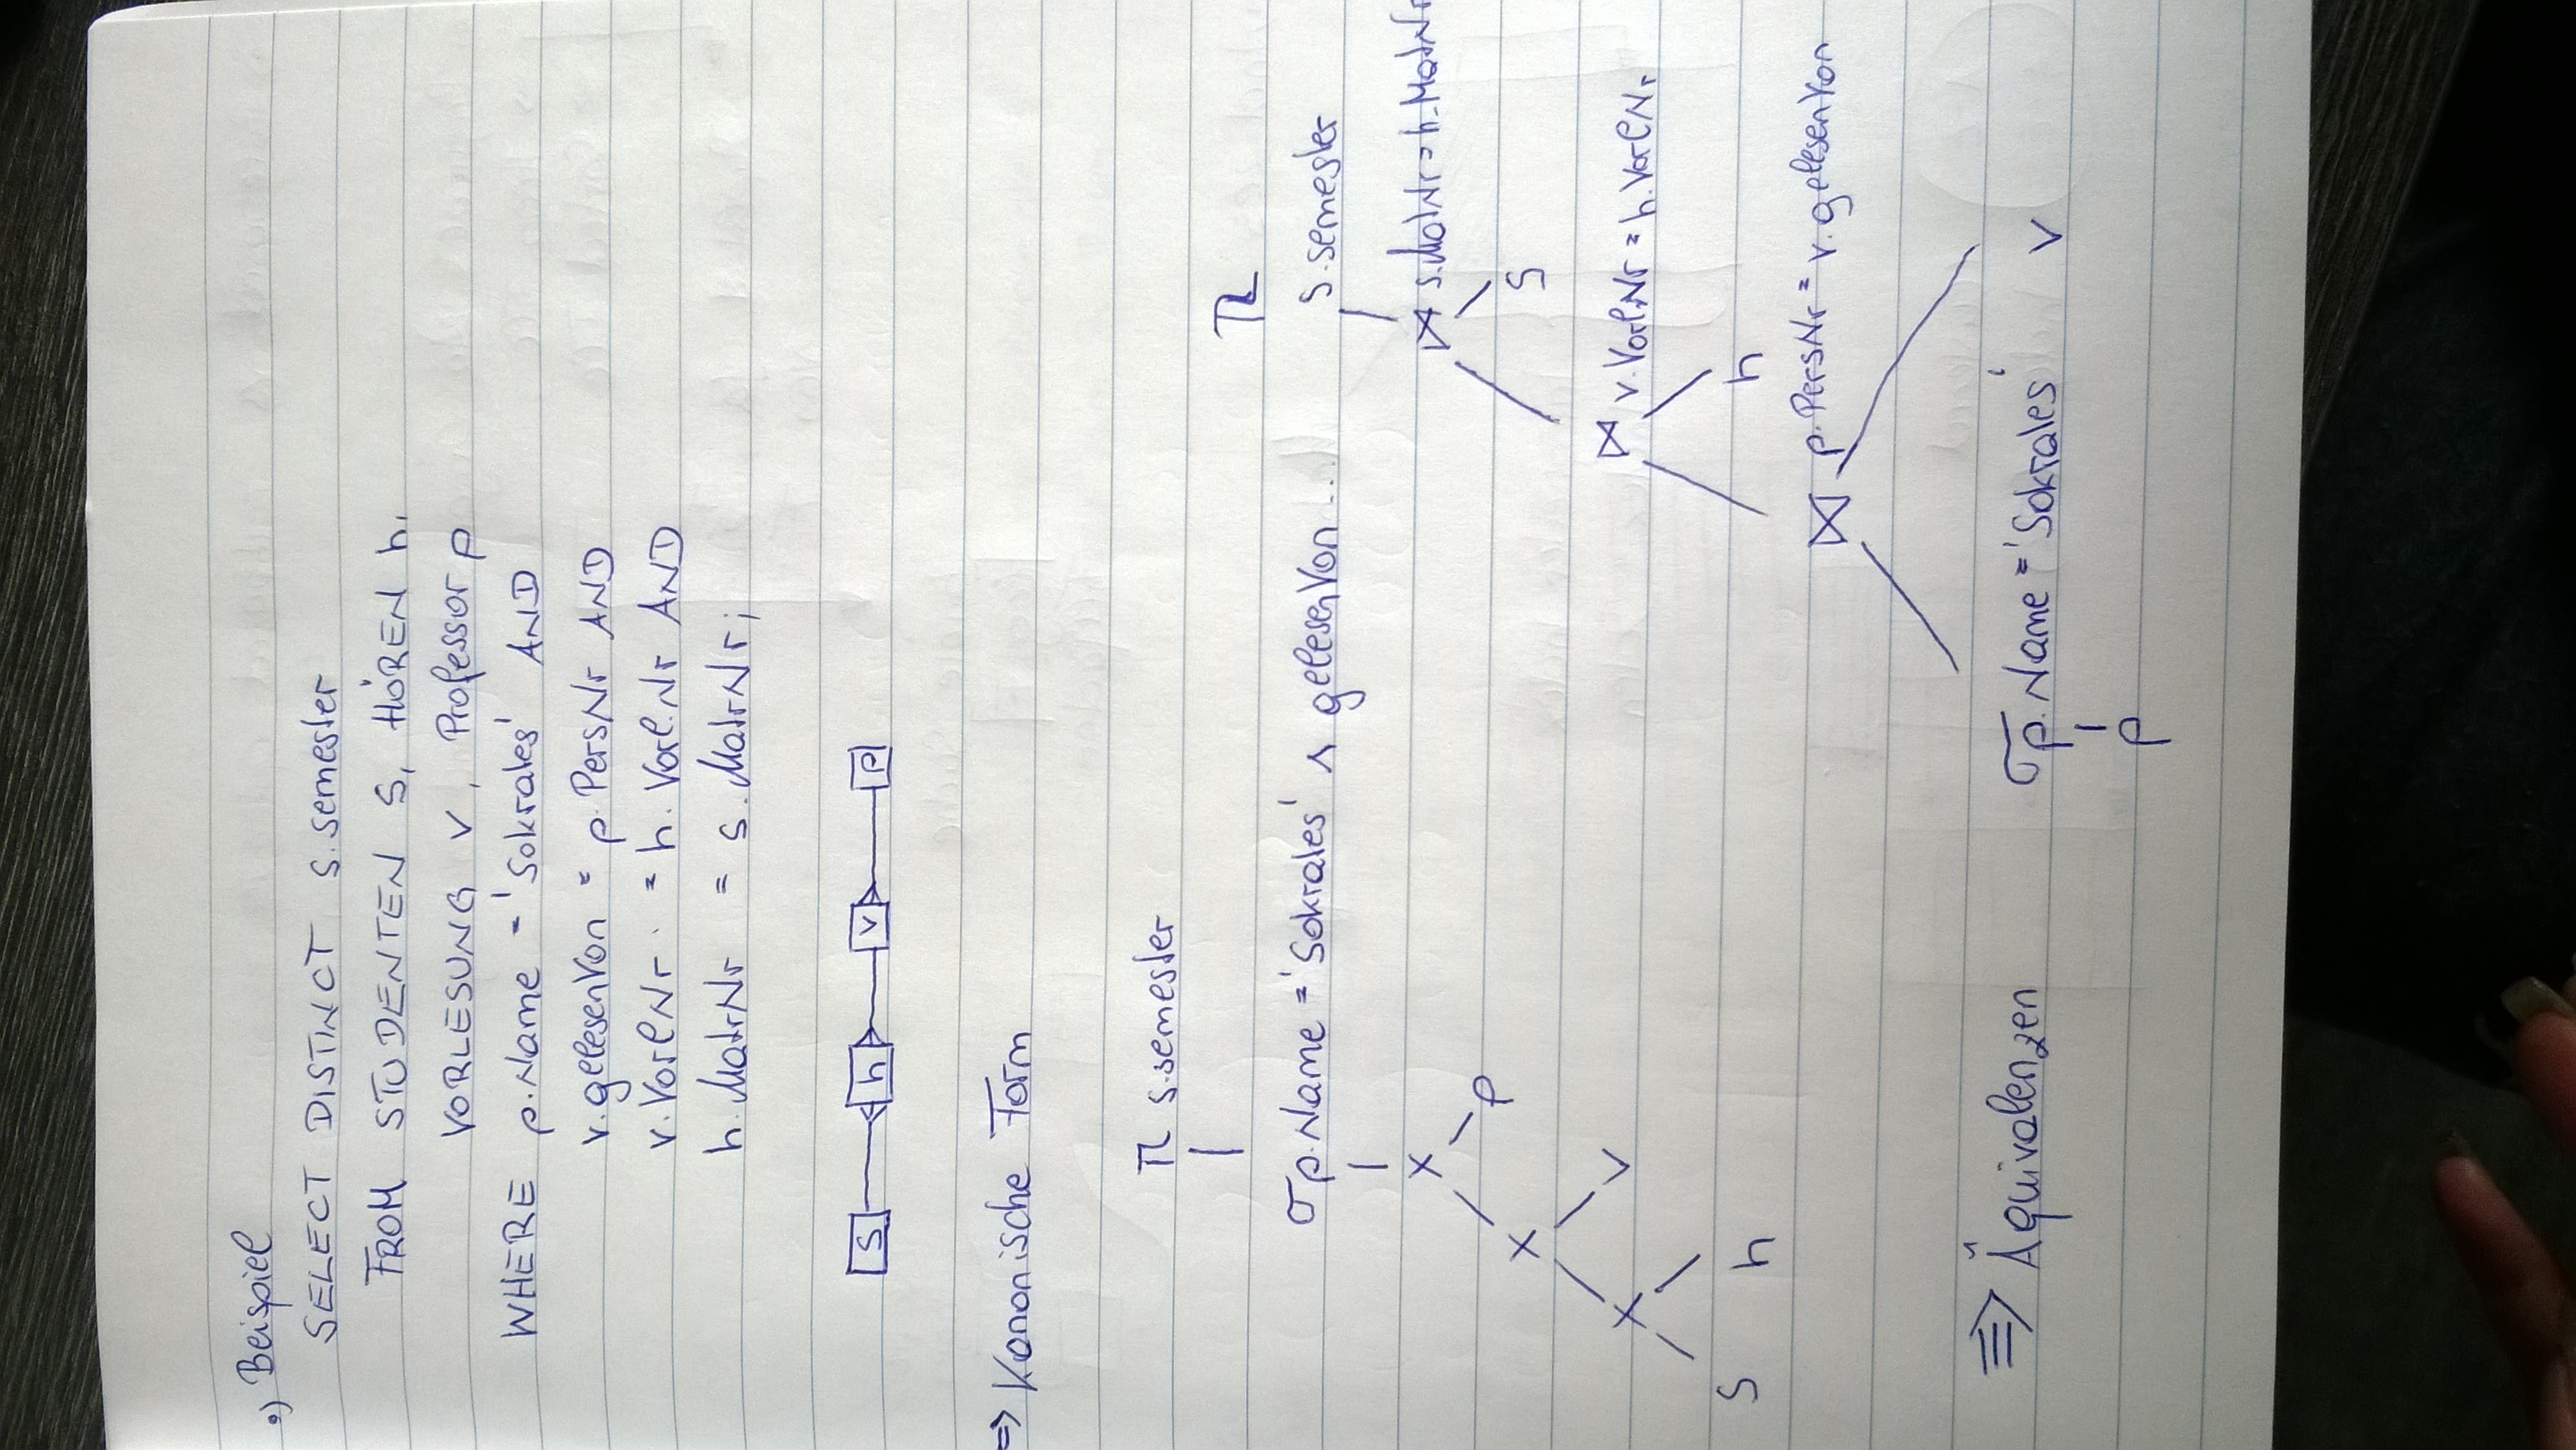 •) Beispiel
SELECT DISTINCT s.semester
FROM STUDENTEN S, HÖREN h,
VORLESUNG v, Professor p
WHERE p.Name = 'Sokrates' AND
v.gelesenVon = p.PersNr AND
v.VorlNr. = h.Vorl.Nr AND
h.MatrNr = s.MatrNr;
S h v p
=> Kanonische Form
π s.semester
σp.Name = 'Sokrates' ∧ gelesenVon...
x p
x v
x
S h
π
s.semester
⋈ s.MatrNr = h.MatrNr
S
⋈ v.Vorl.Nr = h.VorlNr
h
⋈ p.PersNr = v.gelesenVon
σp.Name = 'Sokrates' v
p
=> Äquivalenzen